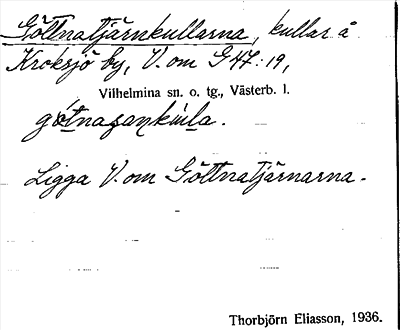 Göttnatjärnkullarna, kullar å
Kroksjö by, V. om G 47:19,
Vilhelmina sn. o. tg., Västerb. l.
Ligga V. om Göttnatjärnarna.
Thorbjörn Eliasson, 1936.